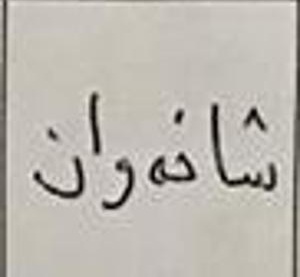 شانەوان